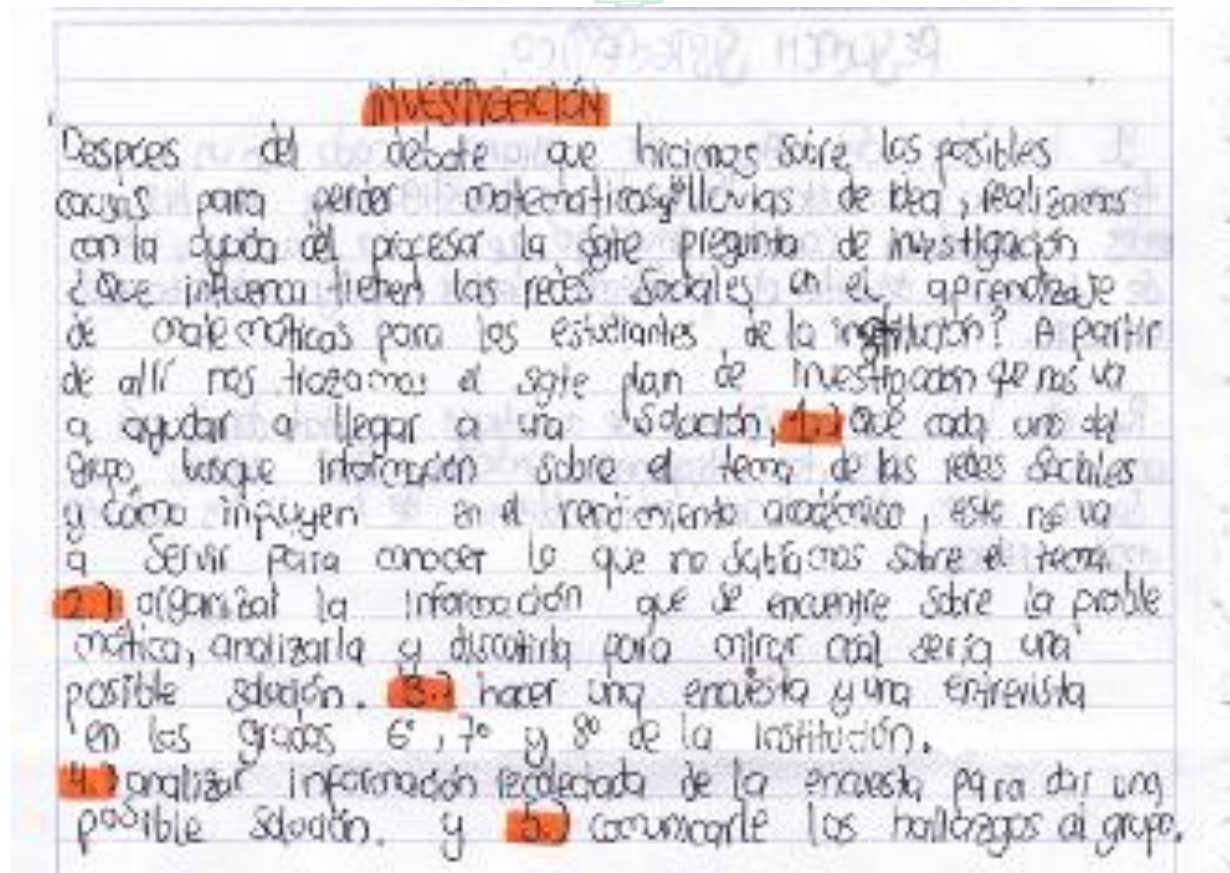 INVESTIGACIÓN
Despues del debate que hicimos sobre las posibles
causas para perder matematicas y lluvias de idea, realizamos
con la ayuda del profesor la sgte pregunta de investigación
¿Que influencia tienen las redes sociales en el aprendizaje
de matemáticas para los estudiantes de la institución? A partir
de allí nos trazamos el sgte plan de investigacion que nos va
a ayudar a llegar a una solución, 1.) Que cada uno del
grupo busque información sobre el tema de las redes sociales
y cómo influyen en el rendimiento académico, esto no va
a servir para conocer lo que no sabíamos sobre el tema
2.) organizar la información que se encuentre sobre la proble
mática, analizarla y discutirla para mirar cual sería una
posible solución. 3.) hacer una encuesta y una entrevista
en los grados 6°, 7° y 8° de la institución.
4.) analizar información recolectada de la encuesta para dar una
posible solución. y 5.) comunicarle los hallazgos al grupo.